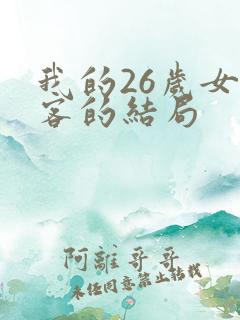 我的26歲女
客的結局
阿離哥哥
未经同意禁止转载